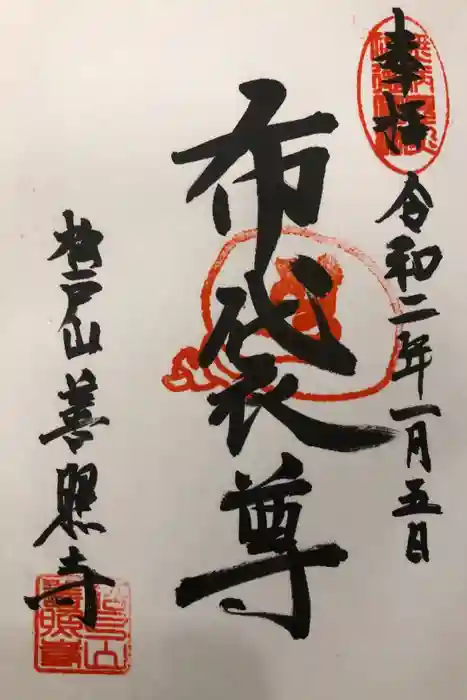 奉拝
令和二年一月五日
布袋尊
松戸山 善照寺